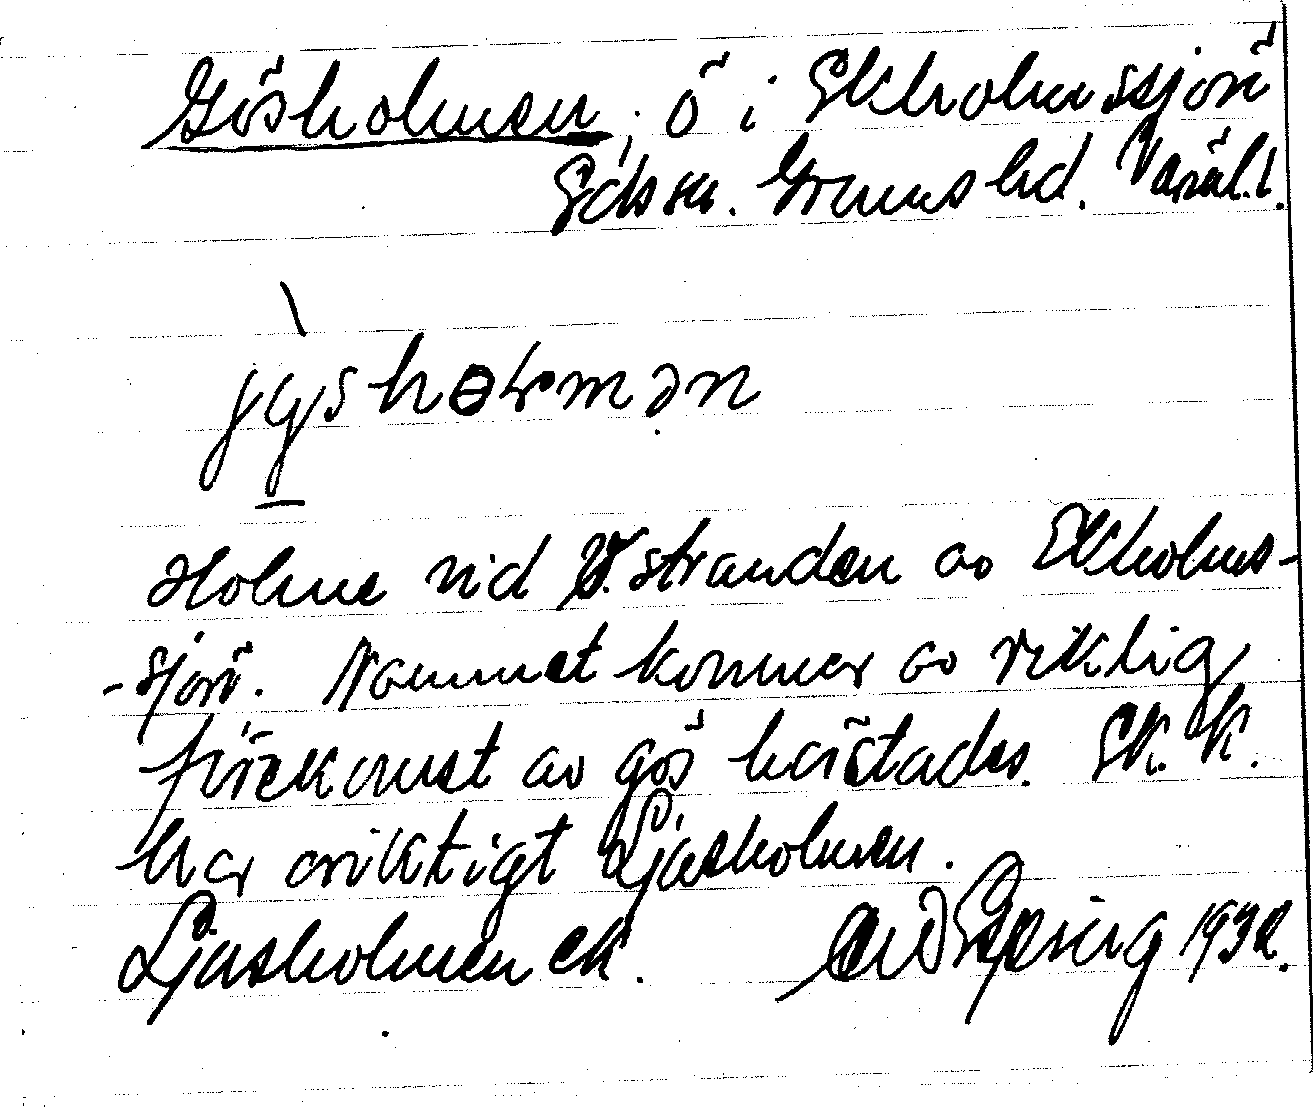 Gösholmen, ö i Ekholmssjön
Eds sn. Grums hd. Värml.l.
jysholmən
Holme vid V. stranden av Ekholms-
-sjön. Namnet kommer av riklig
förekomst av gös härstädes. Ek. K.
har oriktigt Ljusholmen.
Ljusholmen ek. 1932.